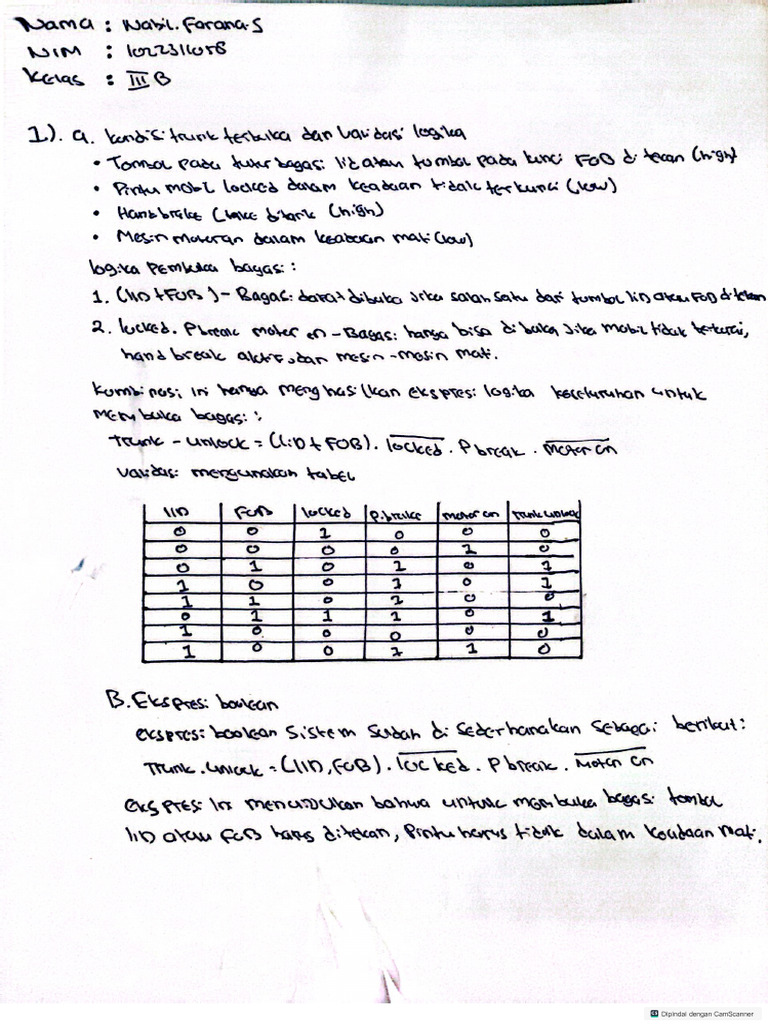 Nama : Nabil. Farana.S
NIM : 1022311058
Kelas : III B
1). a. kondisi trunk terbuka dan validasi logika
• Tombol pada tutup bagasi lid atau tumbol pada kunci FOB di tekan (high)
• Pintu mobil locked dalam keadaan tidak terkunci (low)
• Handbrake ( ditarik (high)
• Mesin motoran dalam keadaan mati (low)
logika pembuka bagasi :
1. (lID + FOB ) - Bagasi dapat dibuka jika salah satu dari tumbol lID atau FOD di tekan
2. locked. Pbreak motor on - Bagasi hanya bisa di buka jika mobil tidak terkunci,
hand break aktif, dan mesin-mesin mati.
kumbinasi ini hanya menghasilkan ekspresi logika keseluruhan untuk
membuka bagasi :
Trunk - unlock = (LID + FOB) . locked . P break . Motor on
Validasi mengunakan tabel
lID FOB locked P.brake motor on trunk unlock
0 0 1 0 0 0
0 0 0 0 1 0
0 1 0 1 0 1
1 0 0 1 0 1
1 1 0 1 0 0
0 1 1 1 0 1
1 0 0 0 0 0
1 0 0 1 1 0
B. Ekspresi boolean
ekspresi boolean sistem sudah di sederhanakan sebagai berikut:
Trunk . unlock = (lID, FOB) . locked . P break . Motor on
ekspresi ini menunjukan bahwa untuk membuka bagasi tombol
lID atau FOB harus ditekan, Pintu harus tidak dalam keadaan mati.
Dipindai dengan CamScanner